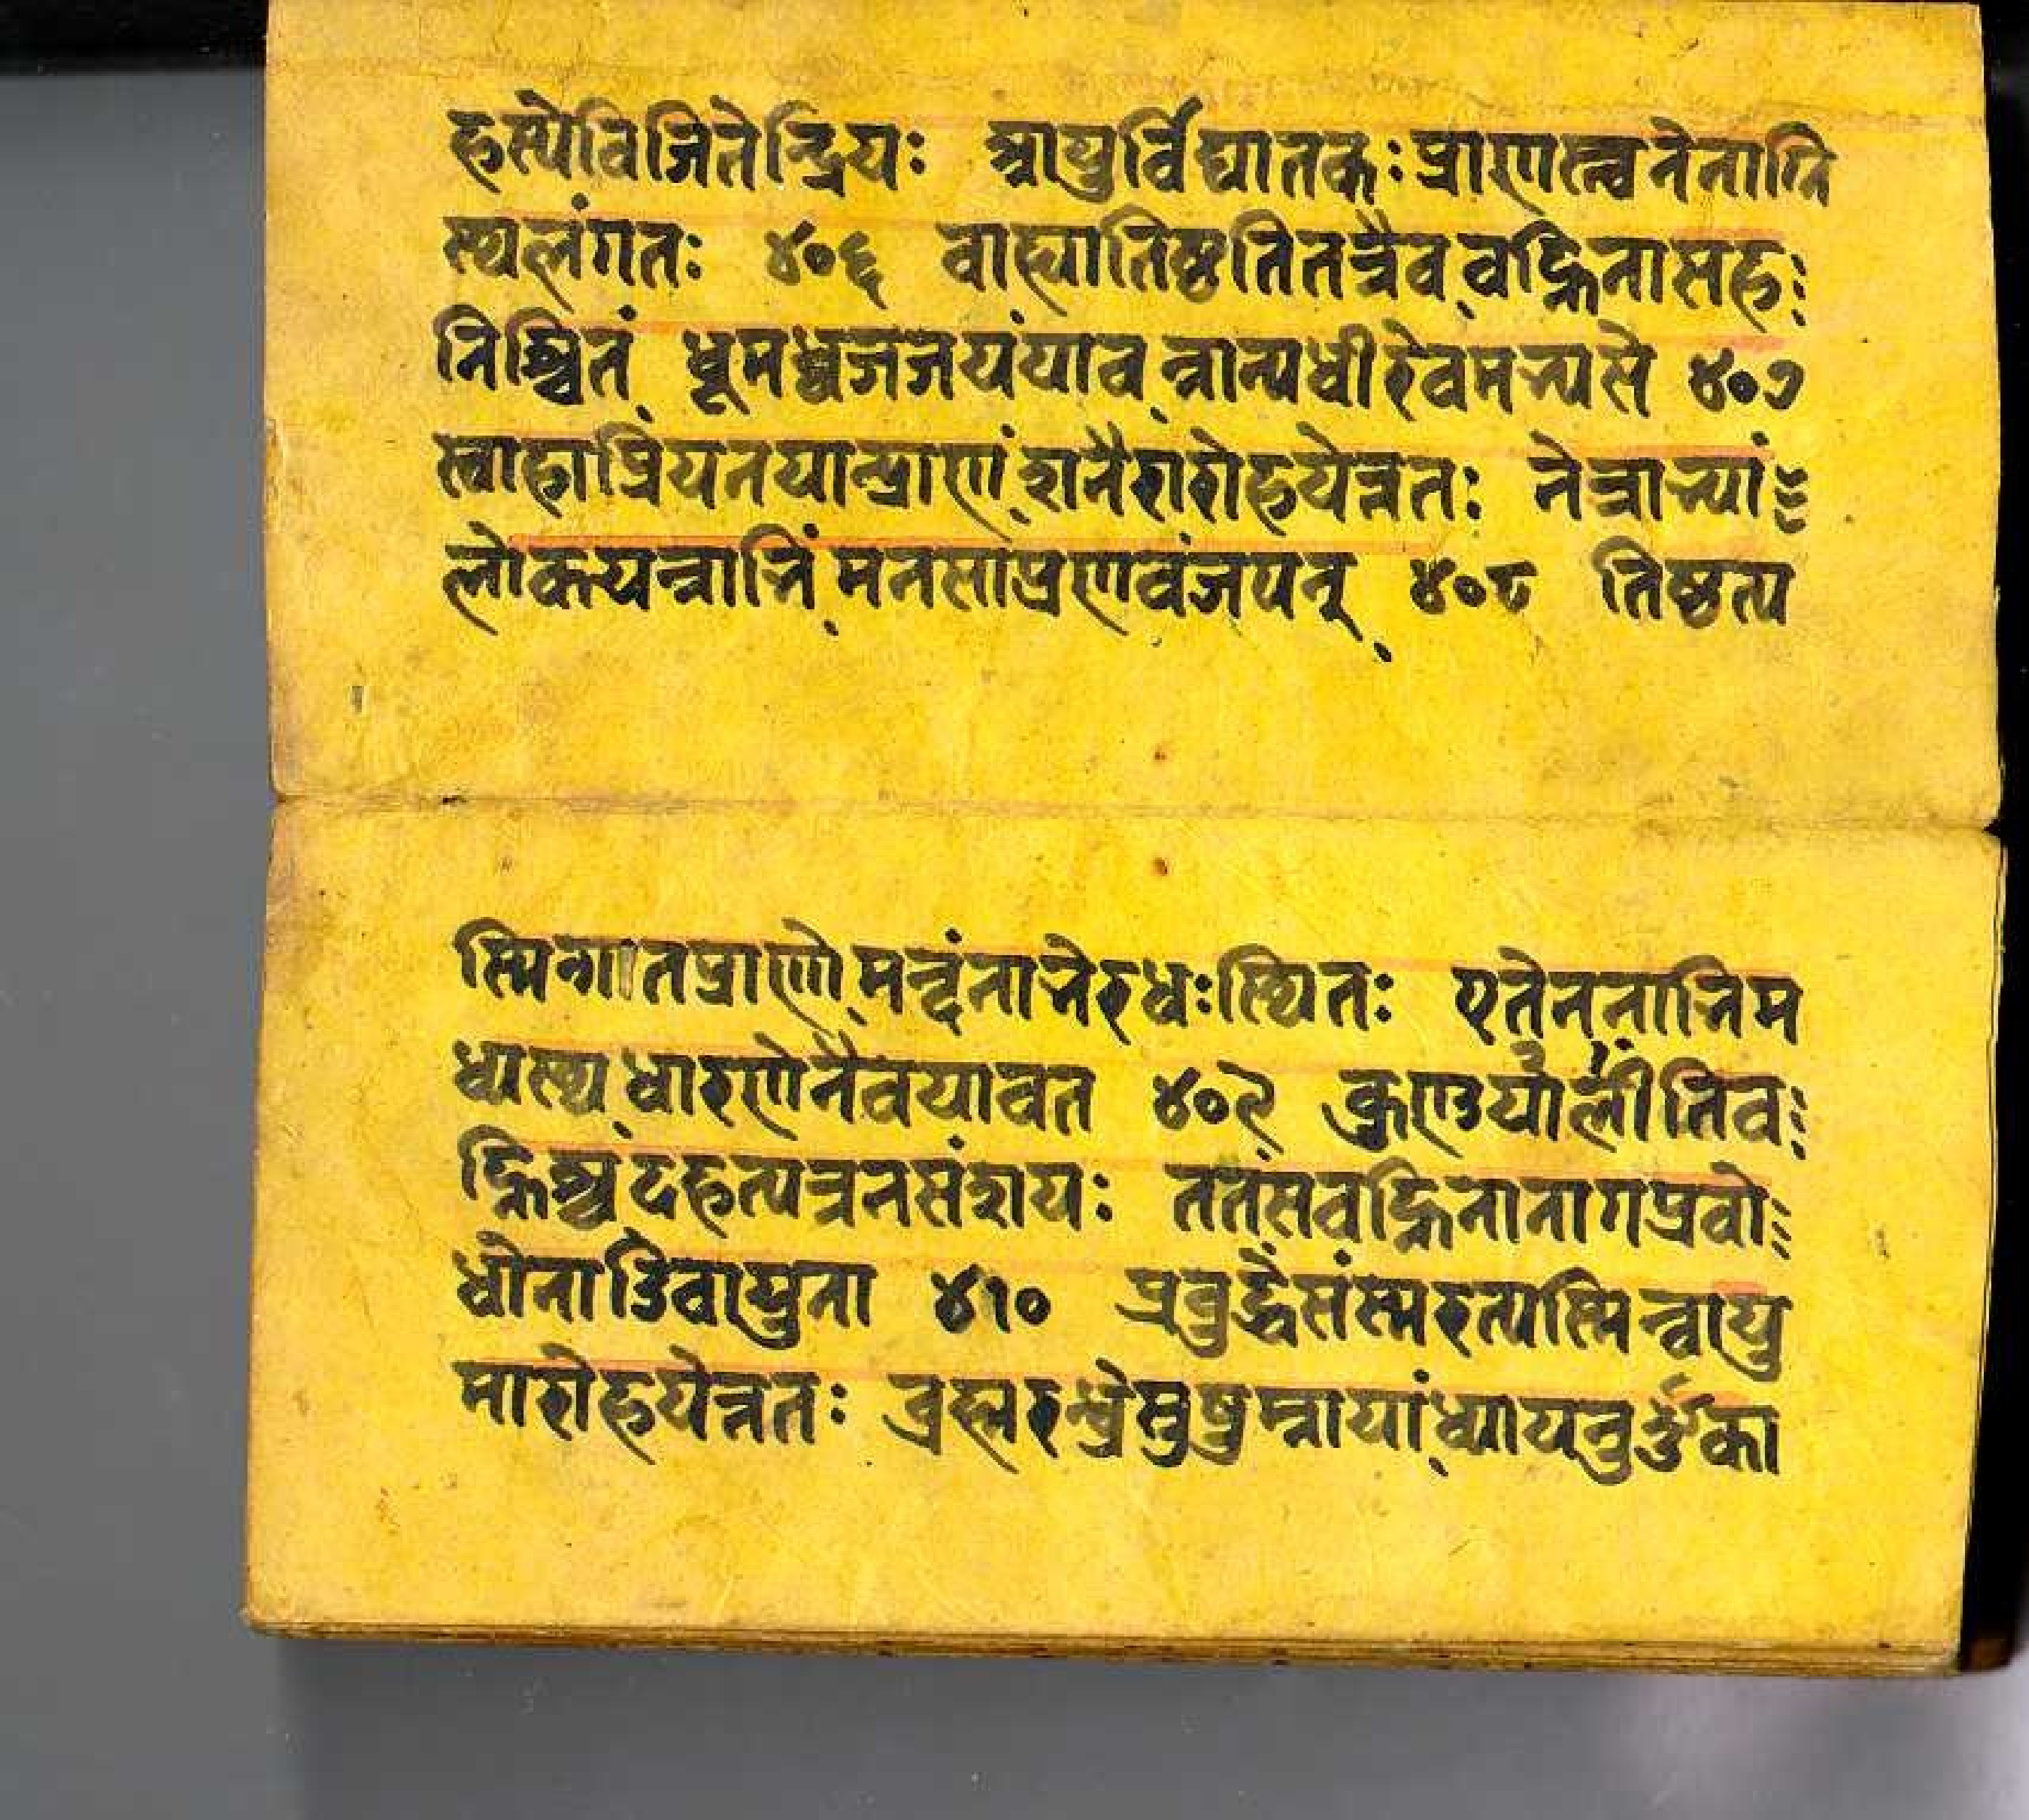 हस्थेविजितेन्द्रियः आयुर्विघातकः प्राणस्त्वनेनाग्नि
स्थलंगतः ४०६ वाह्यातिष्ठतितत्रैव वह्निनासह
निश्चितं धूमध्वजजयंयाव न्नान्यधीरेवमभ्यसे ४०७
त्वाहाप्रियनयान्प्राणं शनैरारोहयेत्ततः नेत्राभ्यां
लोकयन्नाभिं मनसाप्रणवंजपन् ४०८ तिष्ठत्य
स्मिन्गातप्राणे मन्दंनाभेरुधःस्थितः एतेननाभिम
ध्यस्थ धारणेनैवयावत ४०९ कुण्डयालीतिव
ह्निश्च दहत्यत्रनसंशयः ततसवह्निनानागप्रवो
धोनाडिवायुना ४१० प्रबुद्धैसंस्मरत्यस्मिन्वायु
मारोहयेत्ततः ब्रह्मरन्ध्रेसुषुम्नायां ध्यायनुर्ङुका